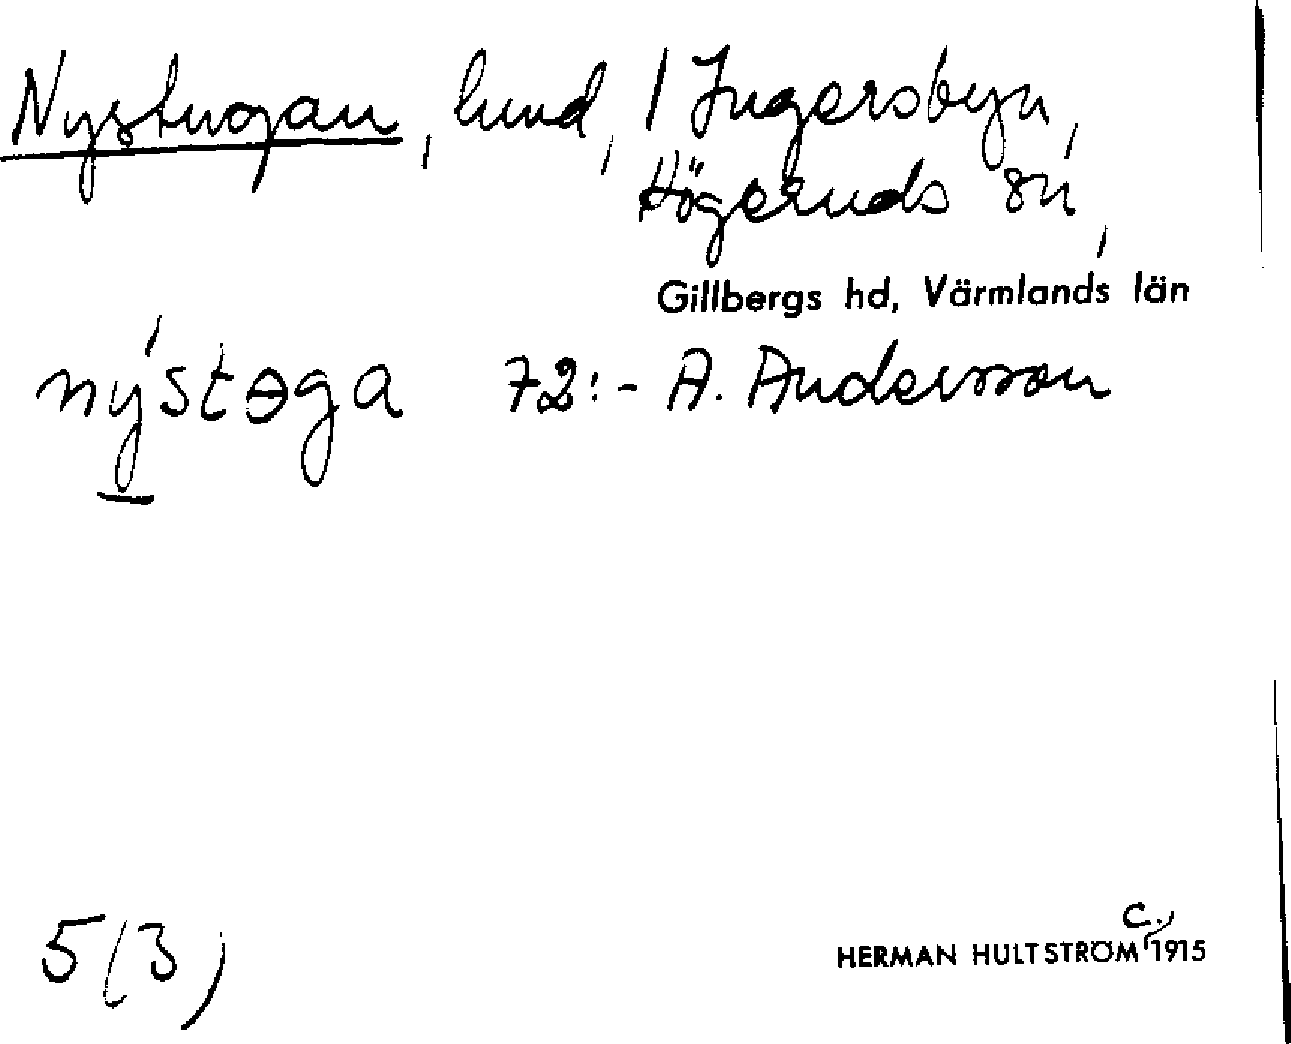 Nystugan, lund, / Ingersbyn,
Högeruds sn,
Gillbergs hd, Värmlands län
nýstɵga 72:- A. Andersson
5(3)
HERMAN HULTSTRÖM c. 1915